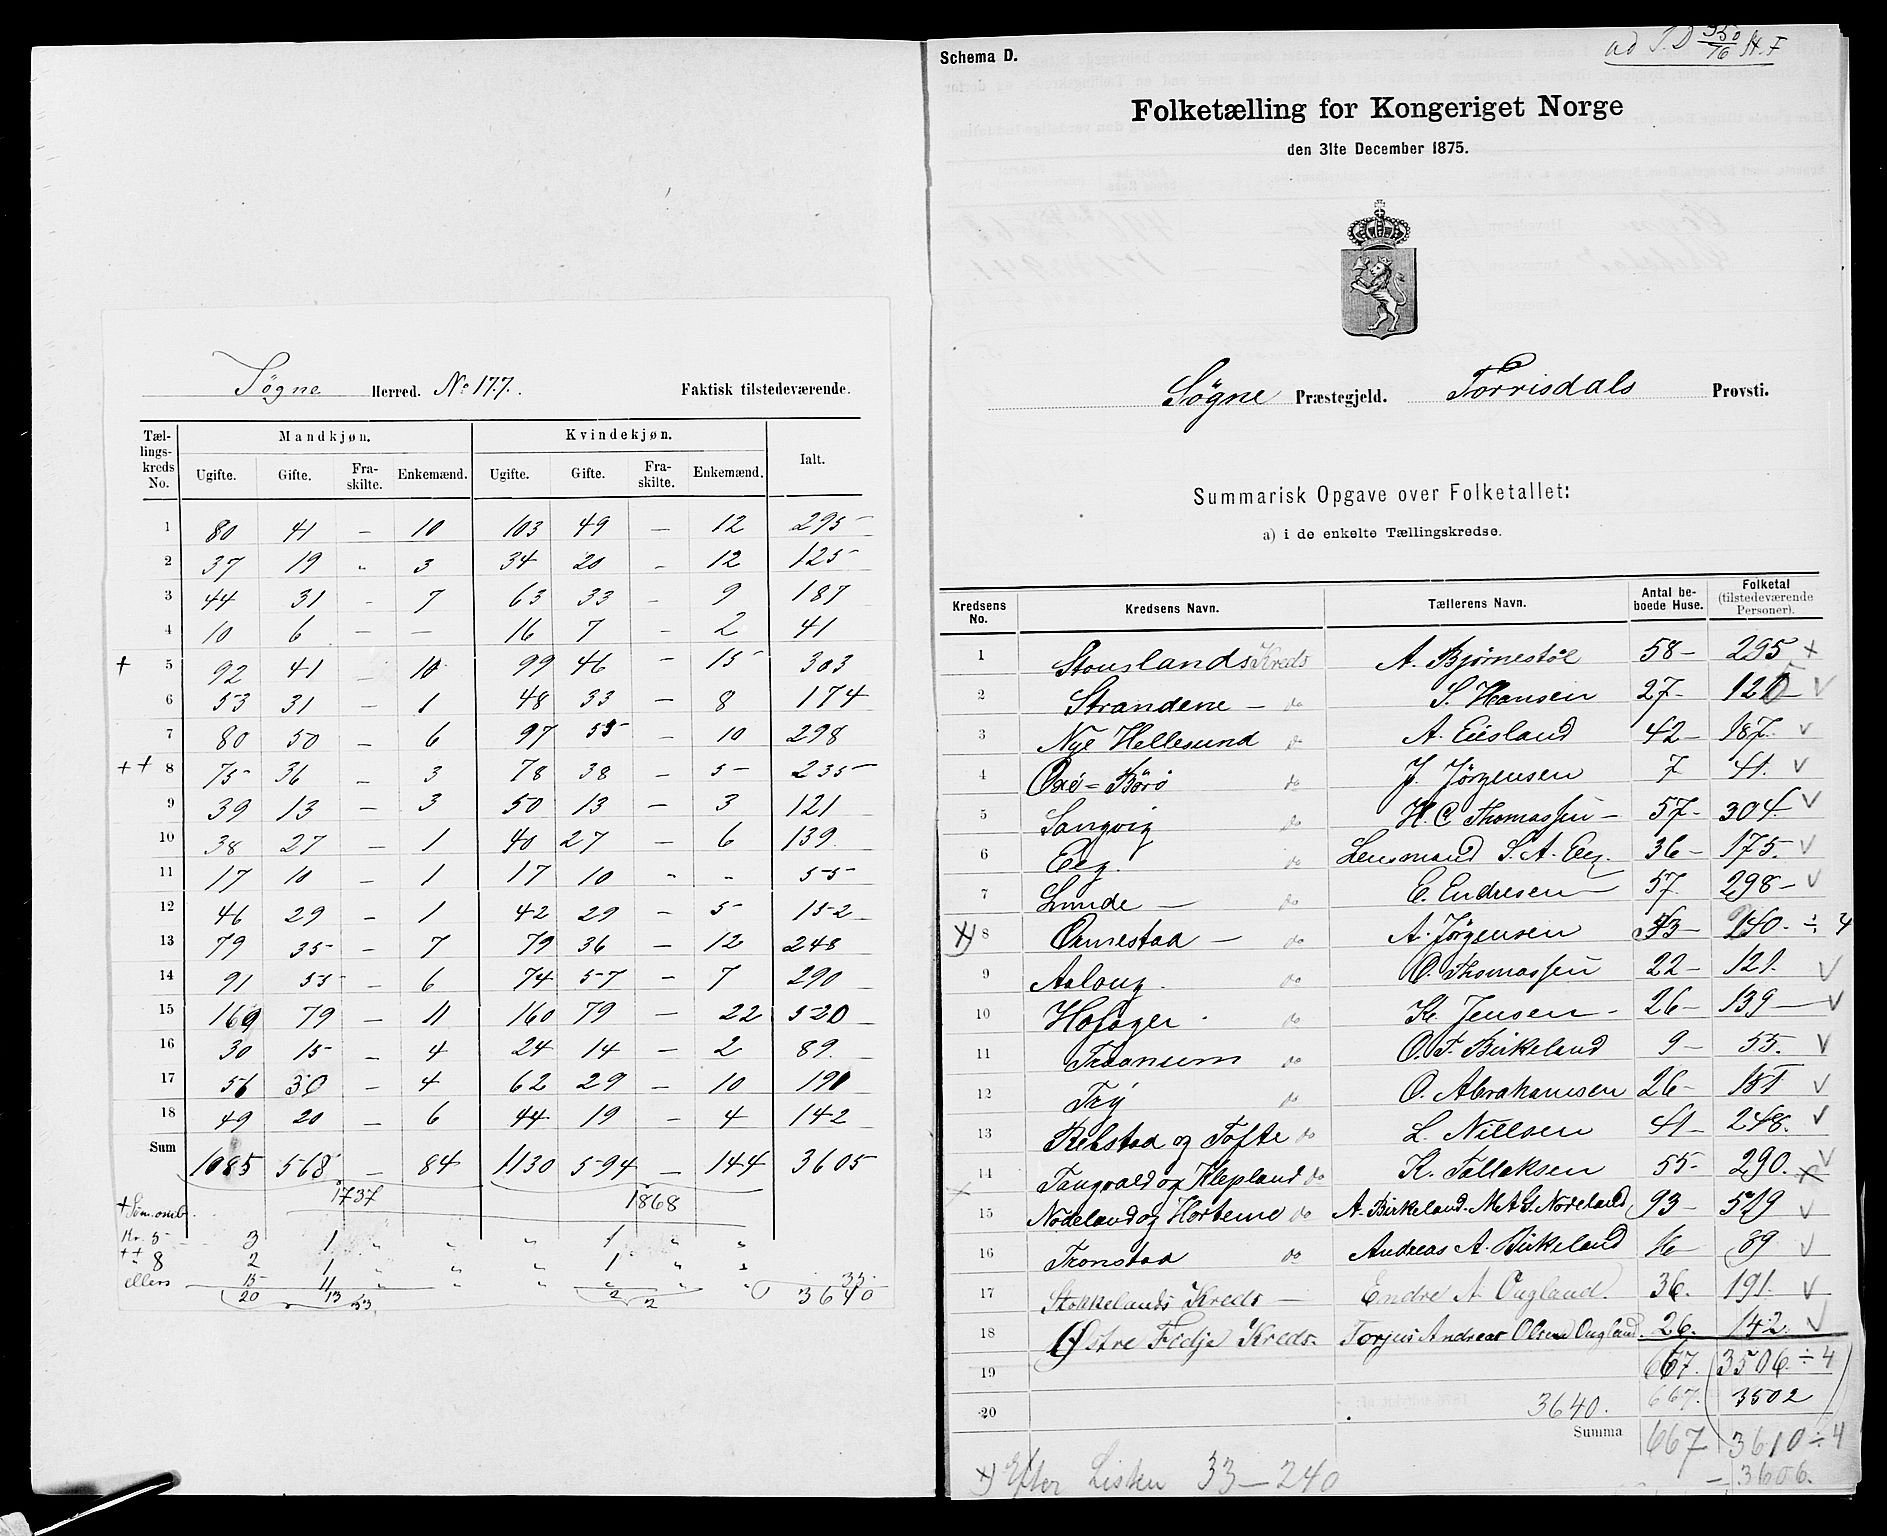 Søgne Herred. No 177. Faktisk tilstedeværende.
Tællingskreds No. Mandkjøn. Kvindekjøn. Ialt.
Ugifte. Gifte. Fraskilte. Enkemænd. Ugifte. Gifte. Fraskilte. Enkemænd.
1 80 41 – 10 103 49 – 12 295
2 37 19 „ 3 34 20 – 12 125
3 44 31 – 7 63 33 – 9 187
4 10 6 – – 16 7 – 2 41
+ 5 92 41 – 10 99 46 – 15 303
6 53 31 – 1 48 33 – 8 174
7 80 50 – 6 97 55 – 10 298
++ 8 75 36 – 3 78 38 – 5 235
9 39 13 – 3 50 13 – 3 121
10 38 27 – 1 40 27 – 6 139.
11 17 10 – 1 17 10 „ „ 55
12 46 29 – 1 42 29 – 5 152
13 79 35 – 7 79 36 – 12 248
14 91 55 – 6 74 57 – 7 290
15 169 79 – 11 160 79 – 22 520
16 30 15 – 4 24 14 – 2 89.
17 56 30 – 4 62 29 – 10 191
18 49 20 – 6 44 19 – 4 142
Sum 1085 568 – 84 1130 594 – 144 3605
1737 1868
Kr. 5 3 1 „ „ „ 1 „ „
++ 8 2 1 „ „ „ 1 „
ellers 15 11 „ „ „ 2 „ 35
20 13 33 2 3640
ad
Schema D.
Folketælling for Kongeriget Norge
den 31te December 1875.
Søgne Præstegjeld. Torrisdals Provsti.
Summarisk Opgave over Folketallet:
a) i de enkelte Tællingskredse.
Kredsens No. Kredsens Navn. Tællerens Navn. Antal beboede Huse. Folketal (tilstedeværende Personer).
1 Stouslands Kreds A. Bjørnestøl 58 – 295 +
2 Strandene – do S. Hansen 27 – 125 v
3 Nye Hellesund do A. Eiesland 42 – 187. v
4 Oxø = Børø do J. Jørgensen 7 41. v
5 Langvig do H. C. Thomassen – 57 – 304. v
6 Eeg. do Lensmand S. A. Eeg. 36 – 175. v
7 Lunde – do E. Endresen – 57. 298 – v
x) 8 Ormestad – do A. Jørgensen 43 – 140. ÷ 4
9 Aalong. do O. Thomassen 22 – 121. v
10 Høfager do K. Jensen – 26 – 139 – v
11 Traansum do O. T. Birkeland 9 – 55. v
12 Try do O. Abrahamsen 26 – 151 v
13 Relstad og Tofte do L. Nillsen 41 – 248. v
14 Tangvald og Klepland do K. Tallaksen 55 – 290. v
15 Nodeland og Hortemo do A. Birkeland. M. A. G. Nodeland, 93 – 519 v
16 Tronstad do Andreas A. Birkeland 16 – 89 v
17 Stokkelands Kreds – Endre A. Ougland. 36. 191. v
18 Østre Fidje Kreds. Torjus Andreas Olsen Ougland. 26. 142. v
19 667. 3506. ÷ 4
20 3640. 667. 3502
Summa 667 3610 ÷ 4
x) Efter Listen 33 – 240 – 3606.